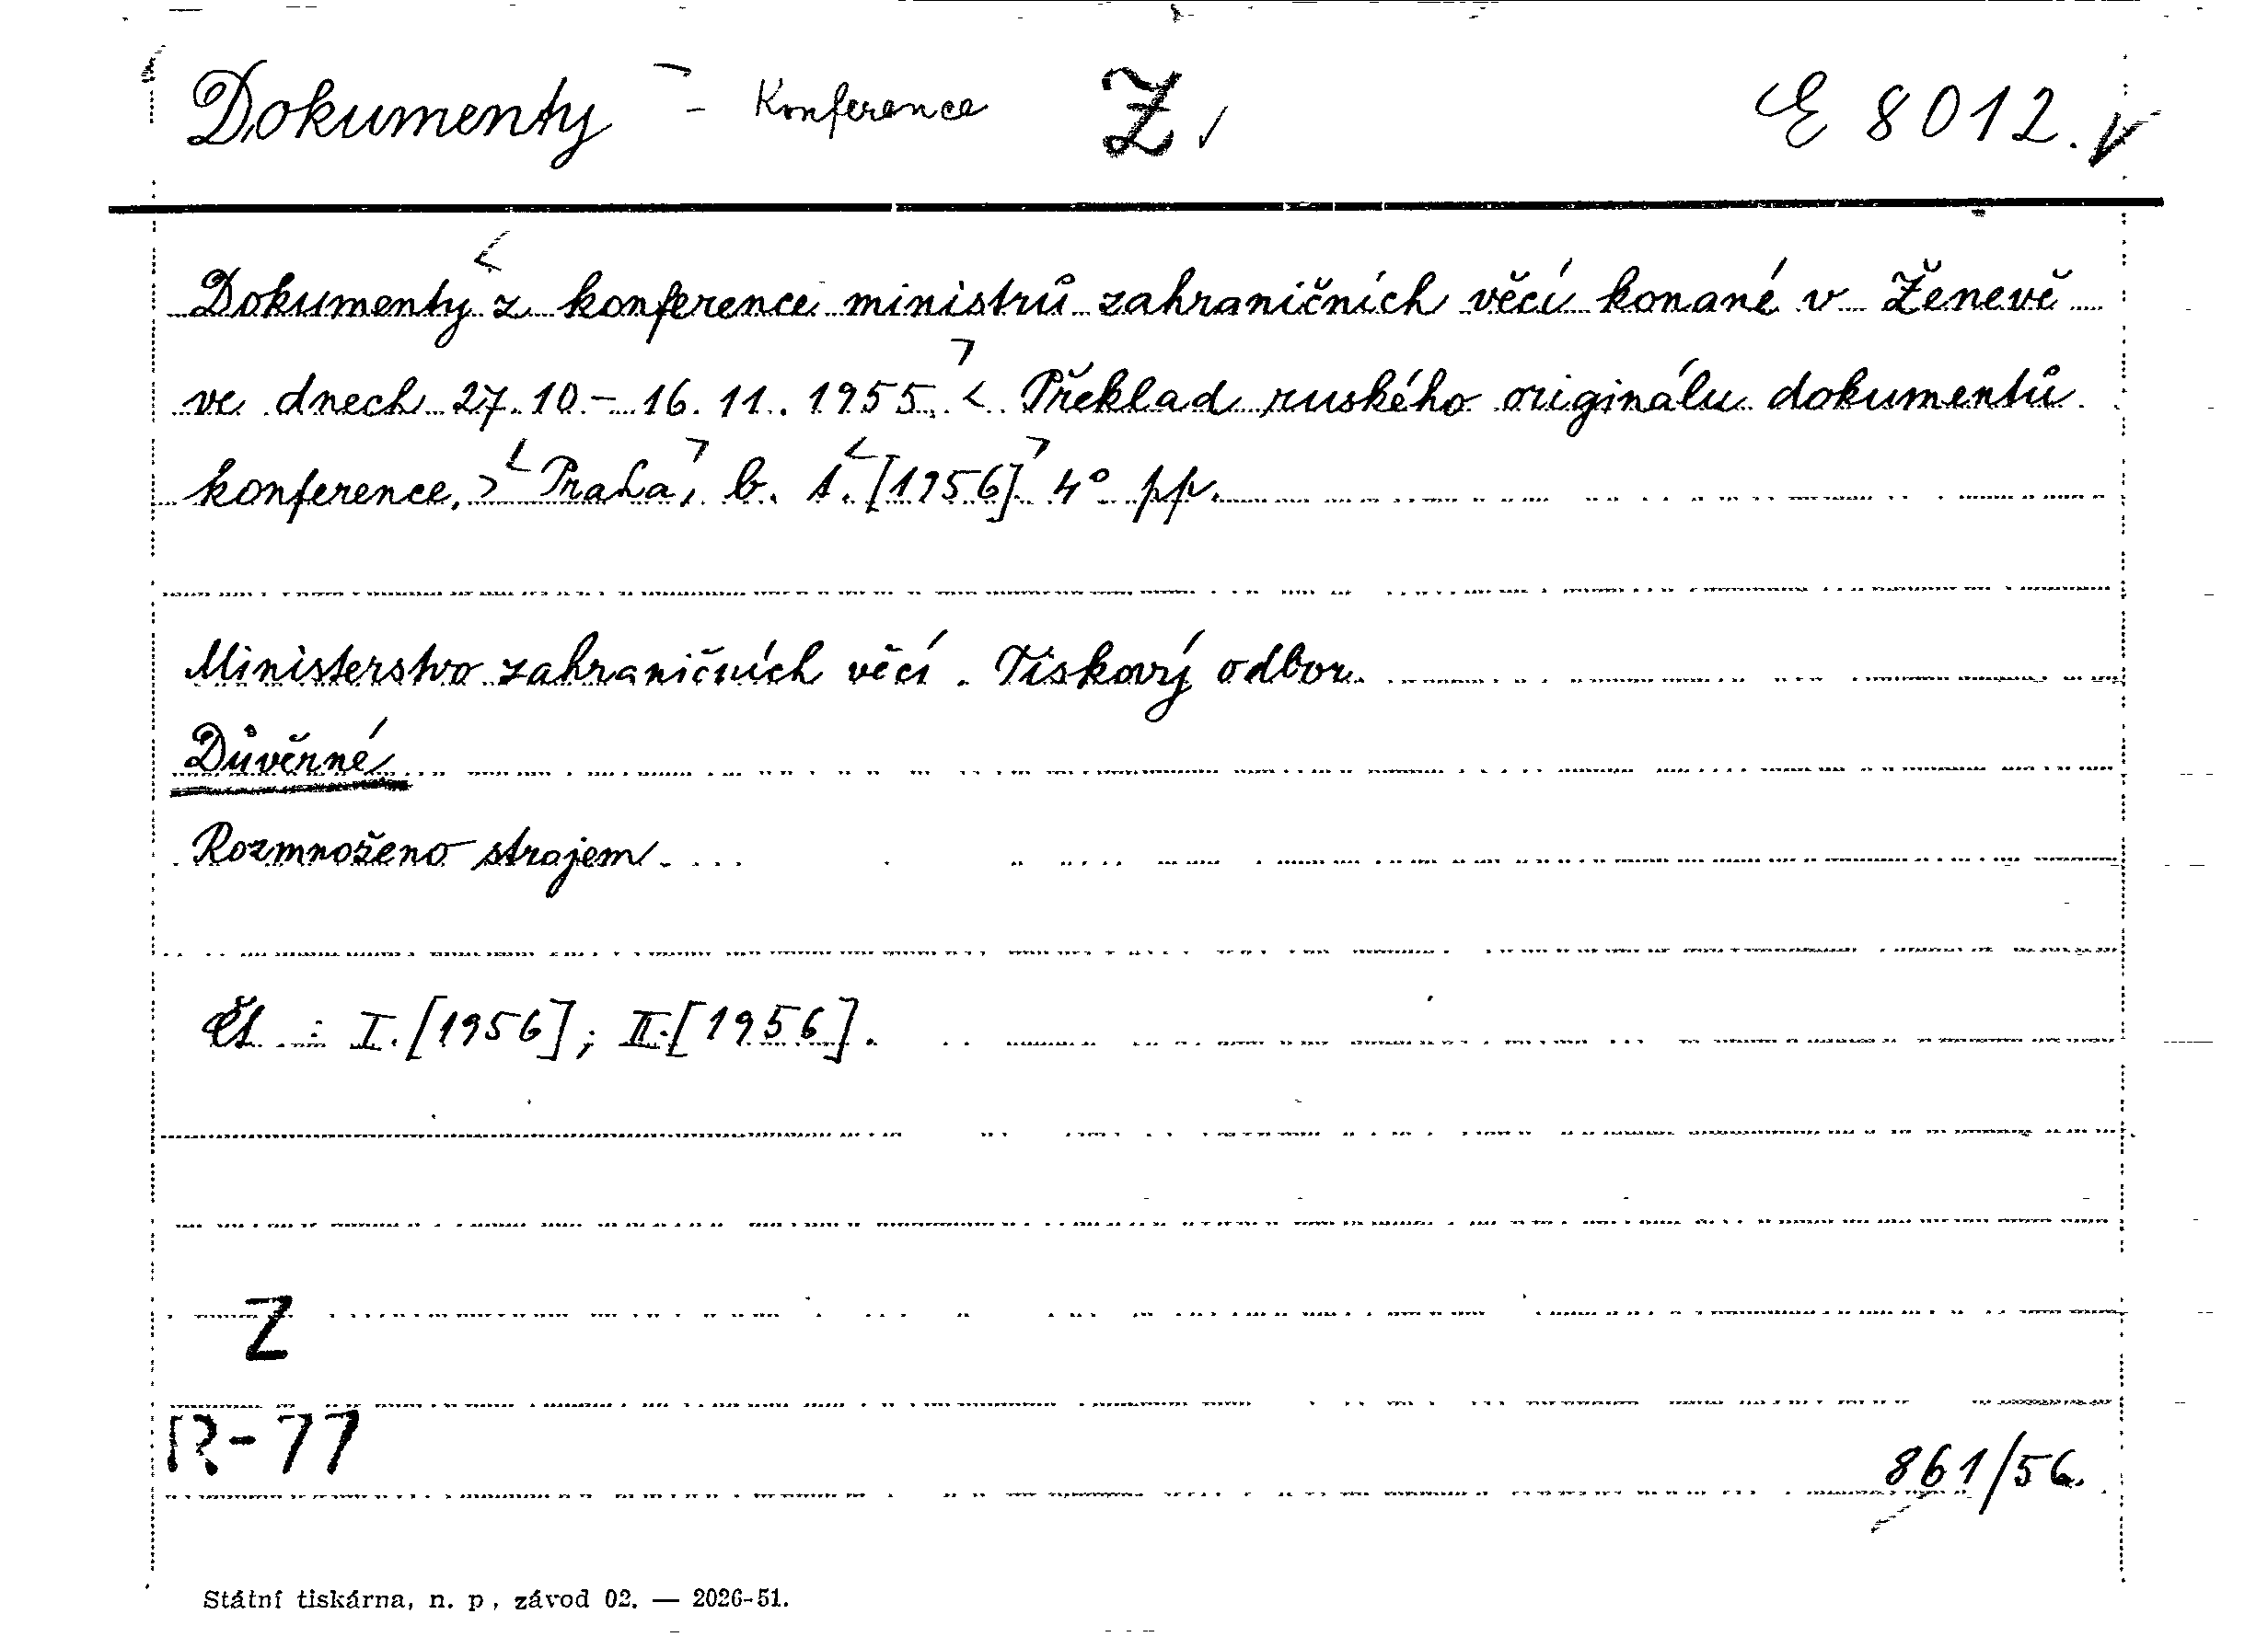 Dokumenty - Konference Z E 8012.
Dokumenty z konference ministrů zahraničních věcí konané v Ženevě
ve dnech 27. 10. - 16. 11. 1955. < Překlad ruského originálu dokumentů
konference. > Praha, b. t. [1956] 4° pp.
Ministerstvo zahraničních věcí. Tiskový odbor.
Důvěrné
Rozmnoženo strojem.
Čl. : I. [1956]; II. [1956].
Z
R-77
861/56.
Státní tiskárna, n. p., závod 02. — 2026-51.